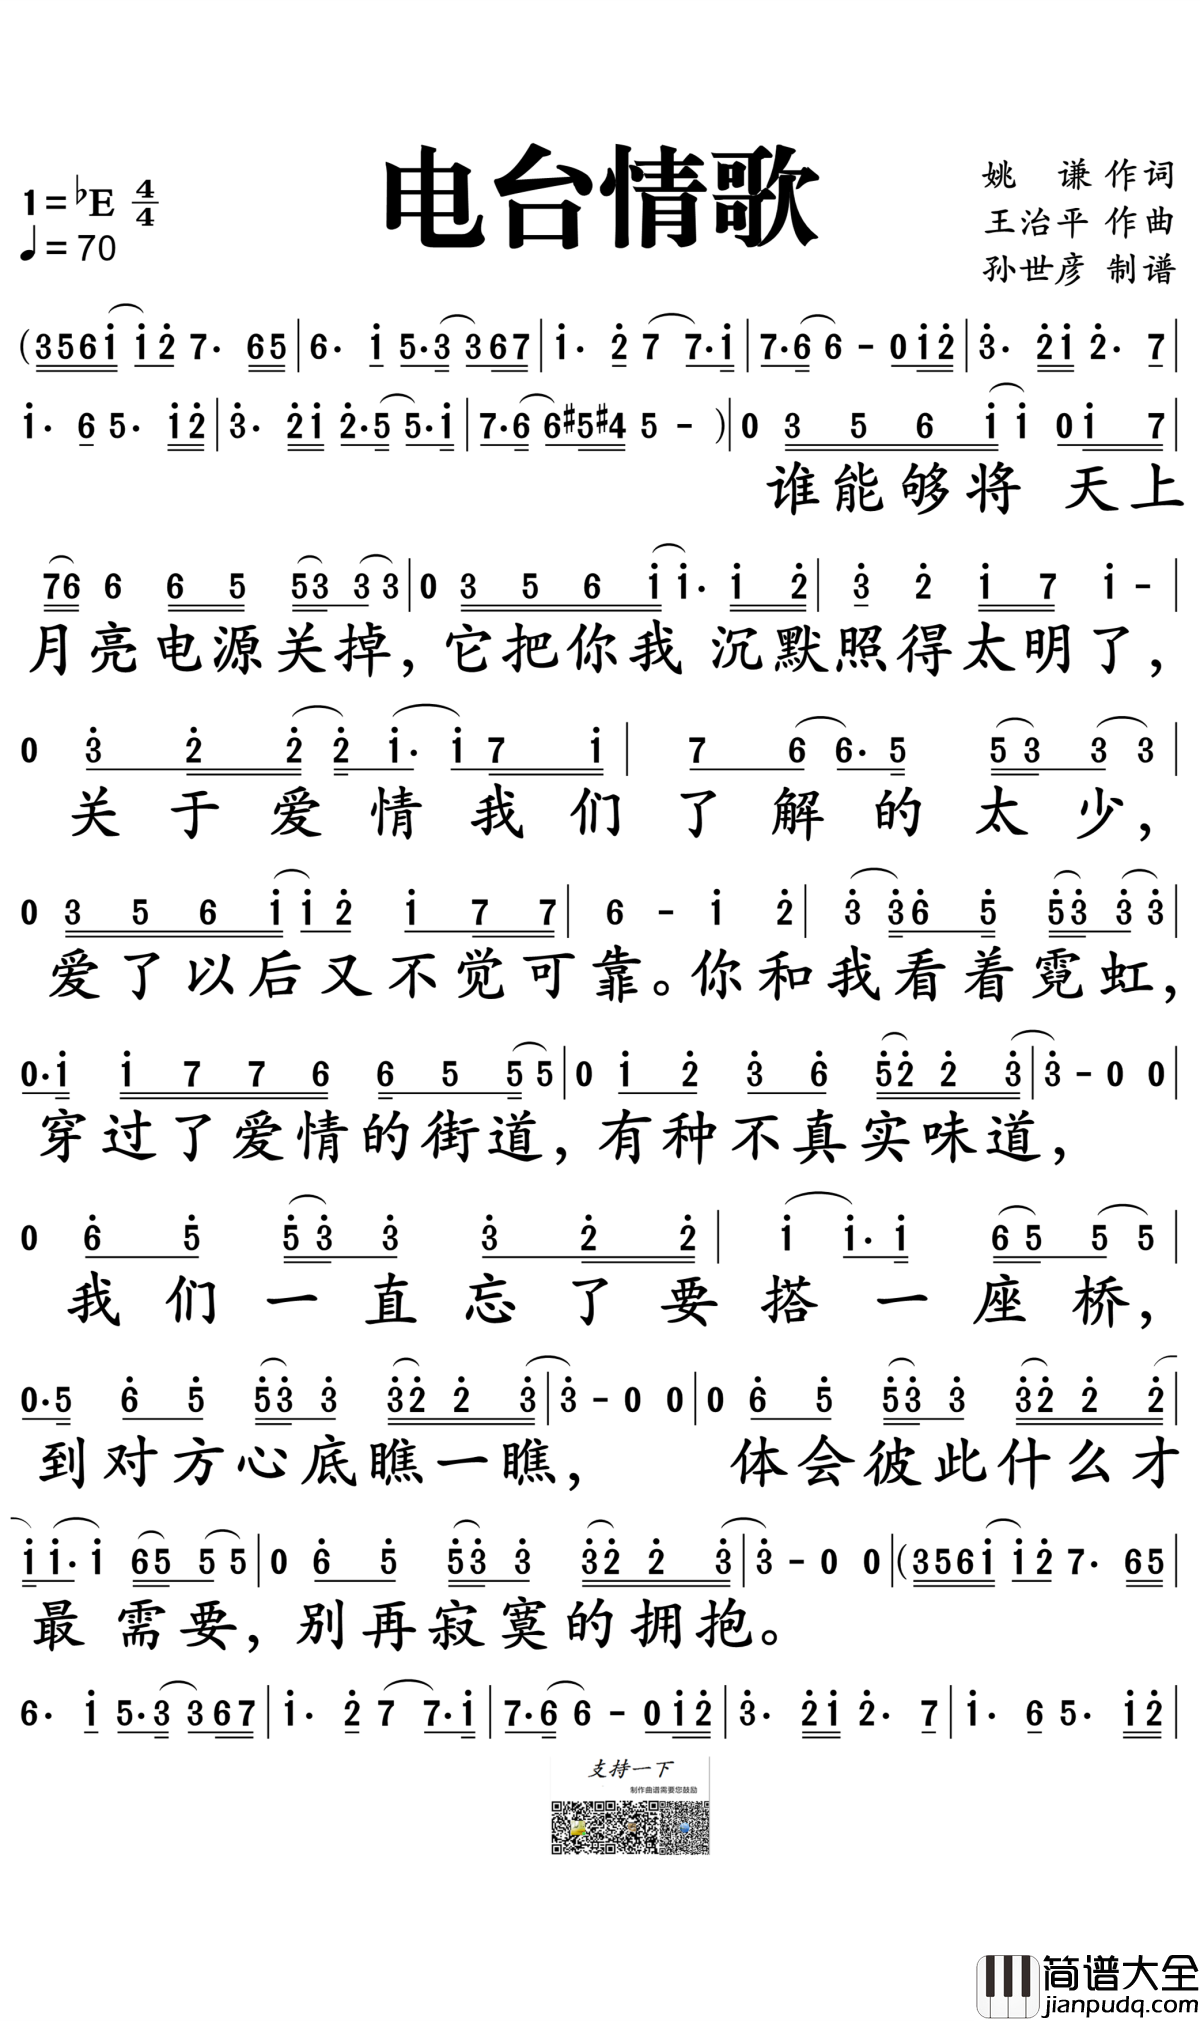 电台情歌
1=♭E 4/4
♩=70
姚 谦 作词
王治平 作曲
孙世彦 制谱
(3561̇ 1̇2̇ 7· 65|6· 1̇ 5·3 367|1̇· 2̇ 7 7·1̇|7·6 6 - 01̇2̇|3̇· 2̇1̇ 2̇· 7|
1̇· 6 5· 1̇2̇|3̇· 2̇1̇ 2̇·5̇ 5·1̇|7·6 6#5#4 5 - )|0 3 5 6 1̇ 1̇ 01̇ 7|
谁能够将 天上
76 6 6 5 53 3 3|0 3 5 6 1̇ 1̇· 1̇ 2̇|3̇ 2̇ 1̇ 7 1̇ -|
月亮电源关掉,它把你我 沉默照得太明了,
0 3̇ 2̇ 2̇ 2̇ 1̇· 1̇ 7 1̇|7 6 6· 5 5 3 3 3|
关于爱情我们了解的太少,
0 3 5 6 1̇ 1̇ 2̇ 1̇ 7 7|6 - 1̇ 2̇|3̇ 3̇6 5̇ 5̇3̇ 3̇ 3̇|
爱了以后又不觉可靠。你和我看着霓虹,
0·1̇ 1̇ 7 7 6 6 5 5 5|0 1̇ 2̇ 3̇ 6̇ 5̇2̇ 2̇ 3̇|3̇ - 0 0|
穿过了爱情的街道,有种不真实味道,
0 6̇ 5̇ 5̇ 3̇ 3̇ 3̇ 2̇ 2̇|1̇ 1̇· 1̇ 6 5 5 5|
我们一直忘了要搭一座桥,
0·5 6̇ 5̇ 5̇3̇ 3̇ 3̇2̇ 2̇ 3̇|3̇ - 0 0|0 6̇ 5̇ 5̇3̇ 3̇ 3̇2̇ 2̇ 2̇|
到对方心底瞧一瞧, 体会彼此什么才
1̇ 1̇· 1̇ 65 5 5|0 6̇ 5̇ 5̇3̇ 3̇ 3̇2̇ 2̇ 3̇|3̇ - 0 0|(3561̇ 1̇2̇ 7· 65|
最需要,别再寂寞的拥抱。
6· 1̇ 5·3 367|1̇· 2̇ 7 7·1̇|7·6 6 - 01̇2̇|3̇· 2̇1̇ 2̇· 7|1̇· 6 5· 1̇2̇|
支持一下
制作曲谱需要您鼓励
简谱大全
jianpudq.com